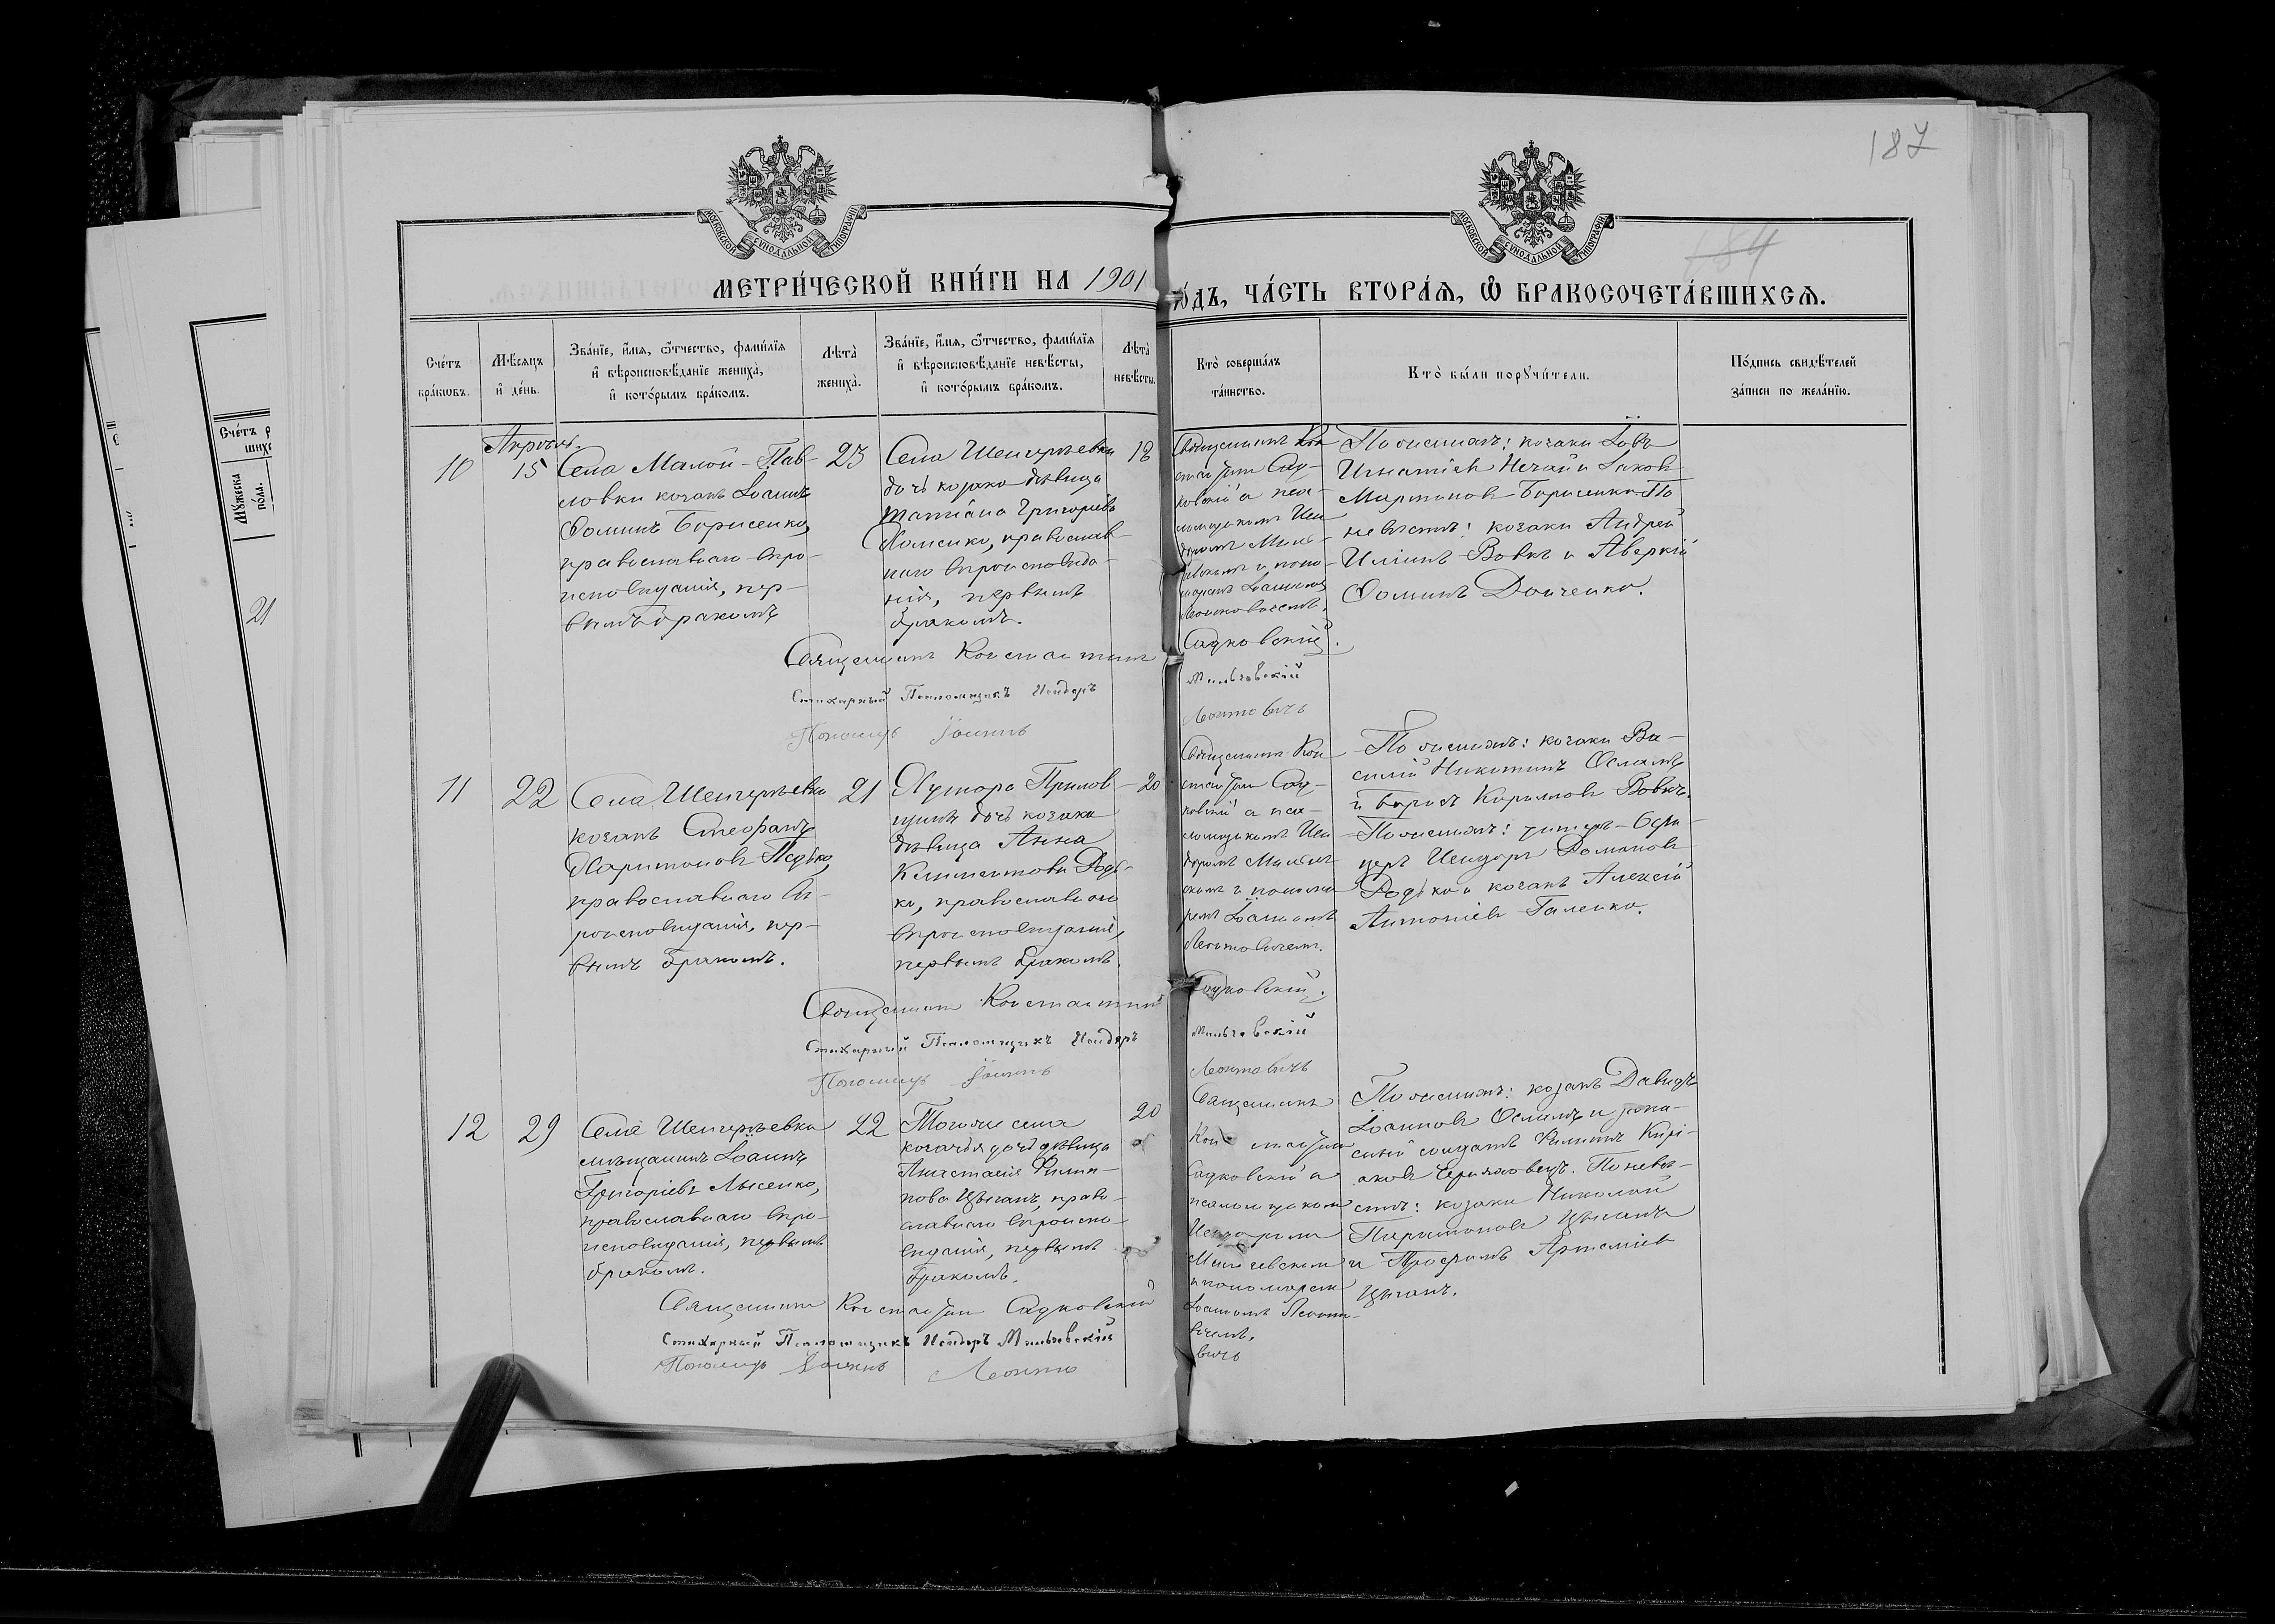 187
184
МОСКОВСКОЙ СѴНОДАЛЬНОЙ ТИПОГРАФІИ
МОСКОВСКОЙ СѴНОДАЛЬНОЙ ТИПОГРАФІИ
МЕТРИ́ЧЕСКОЙ КНИ́ГИ НА 1901
ГО́ДЪ, ЧА́СТЬ ВТОРА́Ѧ, Ѽ БРАКОСОЧЕТА́ВШИХСѦ.
Сче́тъ
бра́ковъ.
Мѣ́сяцъ
и҆ де́нь.
Зва́нїе, и҆́мѧ, ѻ҆́тчество, фами́лїѧ
и҆ вѣроисповѣ́данїе жениха̀,
и҆ кото́рымъ бра́комъ.
Лѣта̀
жениха̀.
Зва́нїе, и҆́мѧ, ѻ҆́тчество, фами́лїѧ
и҆ вѣроисповѣ́данїе невѣ́сты,
и҆ кото́рымъ бра́комъ.
Лѣта̀
невѣ́сты.
Кто̀ соверша́лъ
та́инство.
Кто̀ бы́ли порꙋчи́тели.
По́дпись свидѣ́телей
за́писи по жела́нїю.
Сче́тъ р
Мꙋ́жеска
по́ла.
21
10
Апрѣль
15
Села Малой-Пав-
ловки козакъ Іоаннъ
Ѳоминъ Борисенко,
православнаго вѣро-
исповѣданія, пер-
вымъ бракомъ
23
Села
дочь козака дѣвица
Татіана Григоріева
православ-
наго вѣроисповѣда-
нія, первымъ
бракомъ.
18
Священникъ Кон
стантинъ Сад-
ковскій а пса-
ломщикомъ Иси
доромъ Миль-
чевскимъ и поно-
маремъ Іоанномъ
Леонтовичемъ.
По женихѣ: козаки Іовъ
Игнатіевъ Нечай и Іаковъ
Мартиновъ Борисенко. По
невѣстѣ: козаки Андрей
Иліинъ Вовкъ и Аверкій
Ѳоминъ Донченко.
Священникъ Константинъ Садковскій.
Стихарный Псаломщикъ Исидоръ Мильчевскій
Пономарь Іоаннъ Леонтовичъ
11
22
Села
козакъ Стефанъ
Харитоновъ Педько,
православнаго вѣ-
роисповѣданія, пер-
вымъ бракомъ.
21
Хутора
дочь козака
дѣвица Анна
Климентова Родь-
ко, православнаго
вѣроисповѣданія,
первымъ бракомъ.
20
Священникъ Кон
стантинъ Сад-
ковскій а пса-
ломщикомъ Иси
доромъ Мильчев-
скимъ и понома
ремъ Іоанномъ
Леонтовичемъ.
По женихѣ: козаки Ва-
силій Никитинъ
и Борисъ Кириловъ Вовкъ.
По невѣстѣ: унтеръ-офи-
церъ Исидоръ Романовъ
Родько и козакъ Алексій
Антоніевъ Галенко.
Священникъ Константинъ Садковскій.
Стихарный Псаломщикъ Исидоръ Мильчевскій
Пономарь Іоаннъ Леонтовичъ
12
29
Села
мѣщанинъ Іоаннъ
Григоріевъ Лысенко,
православнаго вѣро-
исповѣданія, первымъ
бракомъ.
22
Того же села
козачья дочь дѣвица
Анастасія Филип-
пова Цыганъ, право-
славнаго вѣроиспо-
вѣданія, первымъ
бракомъ.
20
Священникъ
Константинъ
Садковскій а
псаломщикомъ
Исидоромъ
Мильчевскимъ
и пономаремъ
Іоанномъ Леонто-
вичемъ.
По женихѣ: козакъ Давидъ
Іоанновъ и запа-
сный солдатъ Филиппъ Кирі-
аковъ. По невѣ-
стѣ: козаки Николай
Парамоновъ Цыганъ
и Трофимъ Артеміевъ
Цыганъ.
Священникъ Константинъ Садковскій
Стихарный Псаломщикъ Исидоръ Мильчевскій
Пономарь Іоаннъ Леонто
вичъ